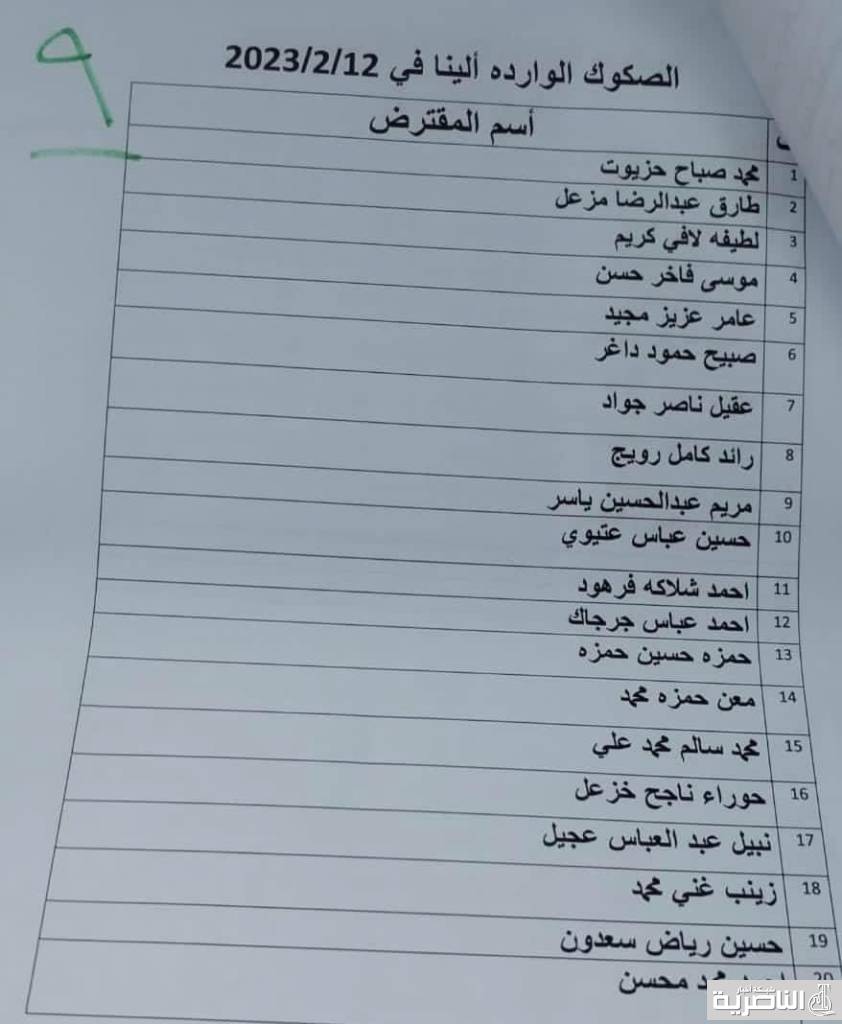 ٩
الصكوك الوارده ألينا في 2023/2/12
أسم المقترض
1 محمد صباح حزيوت
2 طارق عبدالرضا مزعل
3 لطيفه لافي كريم
4 موسى فاخر حسن
5 عامر عزيز مجيد
6 صبيح حمود داغر
7 عقيل ناصر جواد
8 رائد كامل رويج
9 مريم عبدالحسين ياسر
10 حسين عباس عتيوي
11 احمد شلاكه فرهود
12 احمد عباس جرجاك
13 حمزه حسين حمزه
14 معن حمزه محمد
15 محمد سالم محمد علي
16 حوراء ناجح خزعل
17 نبيل عبد العباس عجيل
18 زينب غني محمد
19 حسين رياض سعدون
20 محمد محسن
شبكة أخبار
الناصرية